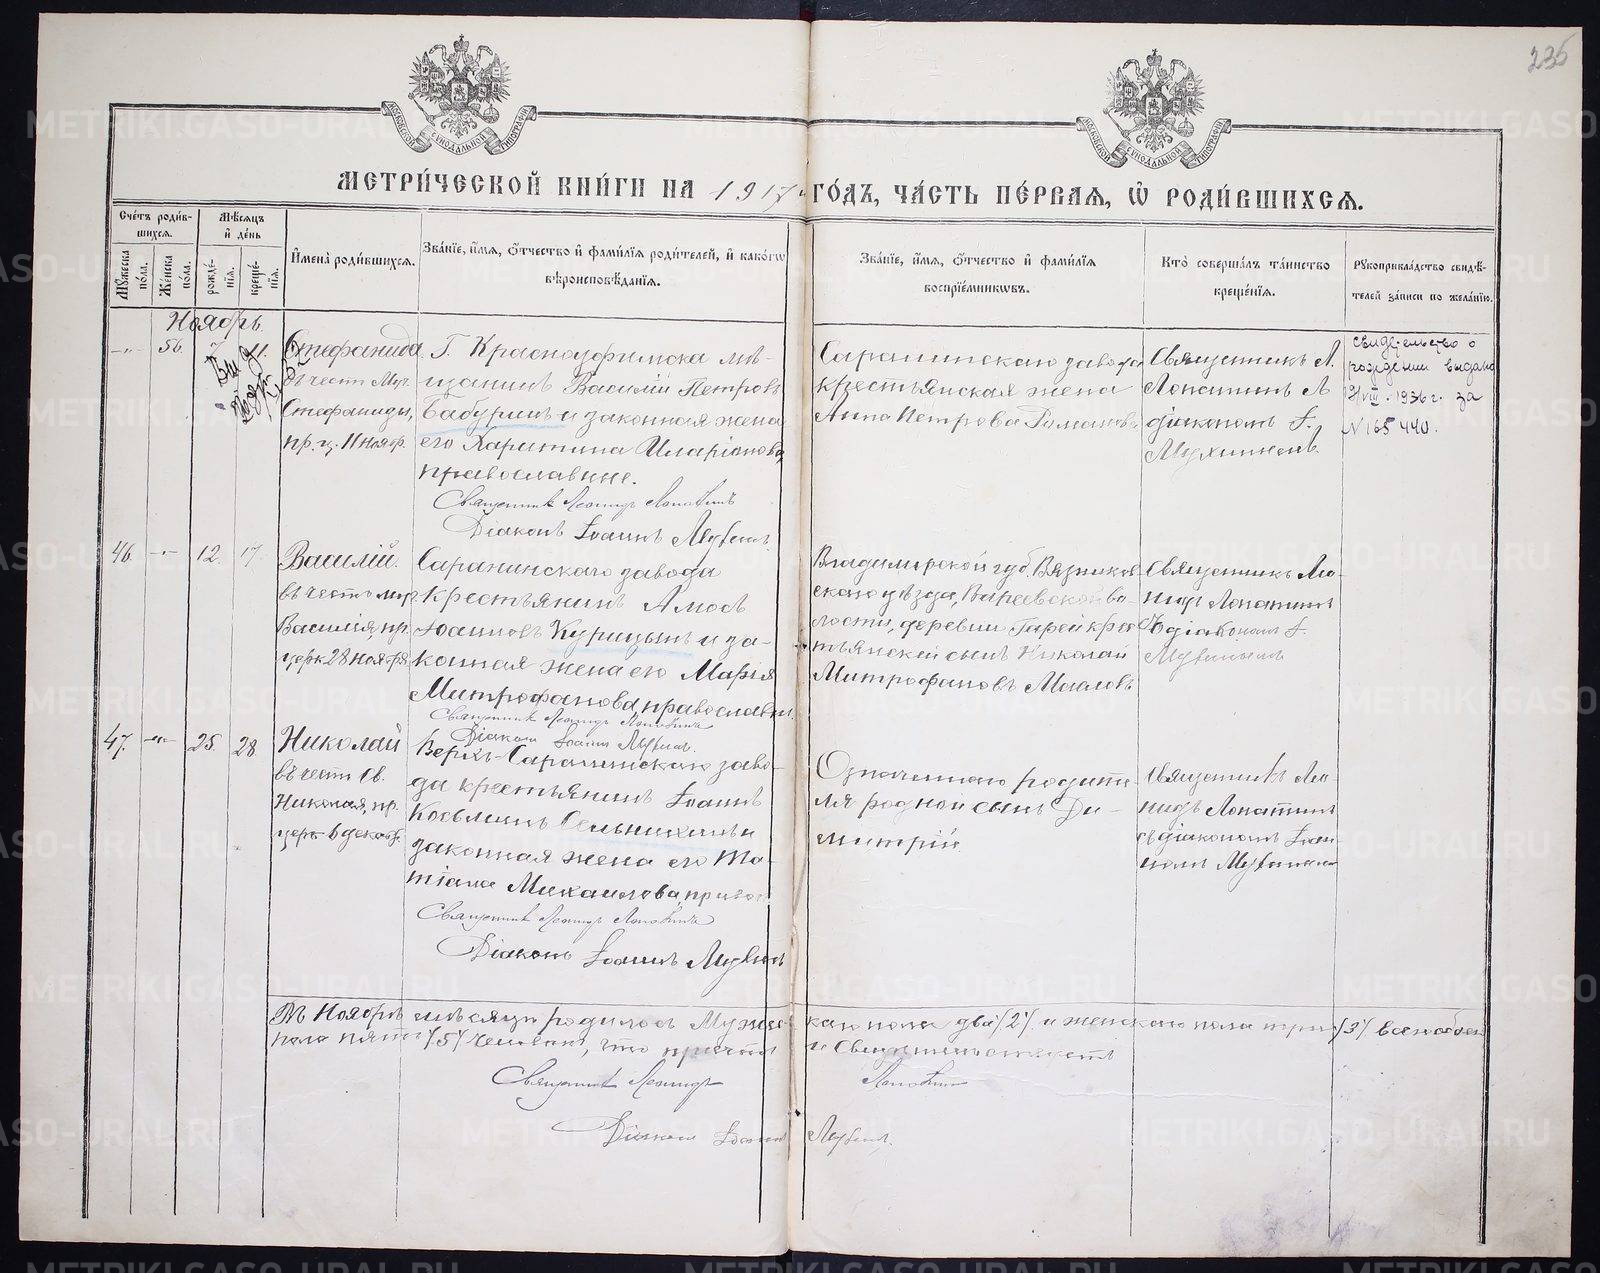 235
МОСКОВСКОЙ СѴНОДАЛЬНОЙ ТИПОГРАФІИ
МОСКОВСКОЙ СѴНОДАЛЬНОЙ ТИПОГРАФІИ
МЕТРИ́ЧЕСКОЙ КНИ́ГИ НА 1917 ГО́ДЪ, ЧА́СТЬ ПЕ́РВАЯ, Ѡ҆ РОДИ́ВШИХСЯ.
Сче́тъ роди́в-
шихся.
Мꙋ́жеска
по́ла.
Же́нска
по́ла.
Мѣ́сяцъ
и҆ де́нь
рожде́-
нїѧ.
креще́-
нїѧ.
И҆мена̀ роди́вшихся.
Зва́нїе, и҆́мѧ, ѻ҆́тчество и҆ фами́лїѧ роди́телей, и҆ како́гѡ
вѣроисповѣ́данїѧ.
Зва́нїе, и҆́мѧ, ѻ҆́тчество и҆ фами́лїѧ
воспрїе́мникѡвъ.
Кто̀ соверша́лъ та́инство
креще́нїѧ.
Рꙋкоприкла́дство свидѣ́-
телей за́писи по жела́нїю.
Ноябрь.
-"- 56. 7. 11.
Стефанида
въ честь Муч.
Стефаниды,
пр. ц. 11 нояб.
Г. Красноуфимска мѣ-
щанинъ Василій Петровъ
Бабуринъ и законная жена
его Харитина Иларіонова,
православные.
Священникъ Леонидъ Лопатинъ
Діаконъ Іоаннъ
Саранинскаго завода
крестьянская жена
Анна Петрова Романова
Священникъ Л.
Лопатинъ
діакономъ І.
Свидетельство о
рождении выдано
VIII. 1936 г. за
№ 165440.
46. -"- 12. 17.
Василій.
въ честь муч.
Василія, пр.
церк. 28 ноября
Саранинскаго завода
крестьянинъ Амосъ
Іоанновъ Курицынъ и за-
конная жена его Марія
Митрофанова, православн.
Священникъ Леонидъ Лопатинъ
Діаконъ Іоаннъ
Владимирской губ. Вязников-
скаго уѣзда,
лости, деревни кре-
стьянскій сынъ Николай
Митрофановъ
Священникъ Лео-
нидъ Лопатинъ
съ діакономъ І.
47. -"- 25. 28.
Николай
въ честь Св.
Николая, пр.
церк. 6 декаб.
Верхъ-Саранинскаго заво-
да крестьянинъ Іоаннъ
и
законная жена его Та-
тіана Михаилова, правос.
Священникъ Леонидъ Лопатинъ
Діаконъ Іоаннъ
Означеннаго родите-
ля родной сынъ Ди-
митрій
Священникъ Лео-
нидъ Лопатинъ
съ діакономъ Іоан-
номъ
Въ Ноябрѣ мѣсяцѣ родилось Мужес-
каго пола два /2/ и женскаго пола три /3/ всего обоего
пола пять /5/ человѣкъ, что
и свидѣтельствуетъ
Священникъ Леонидъ Лопатинъ
Діаконъ Іоаннъ
METRIKI.GASO-URAL.RU